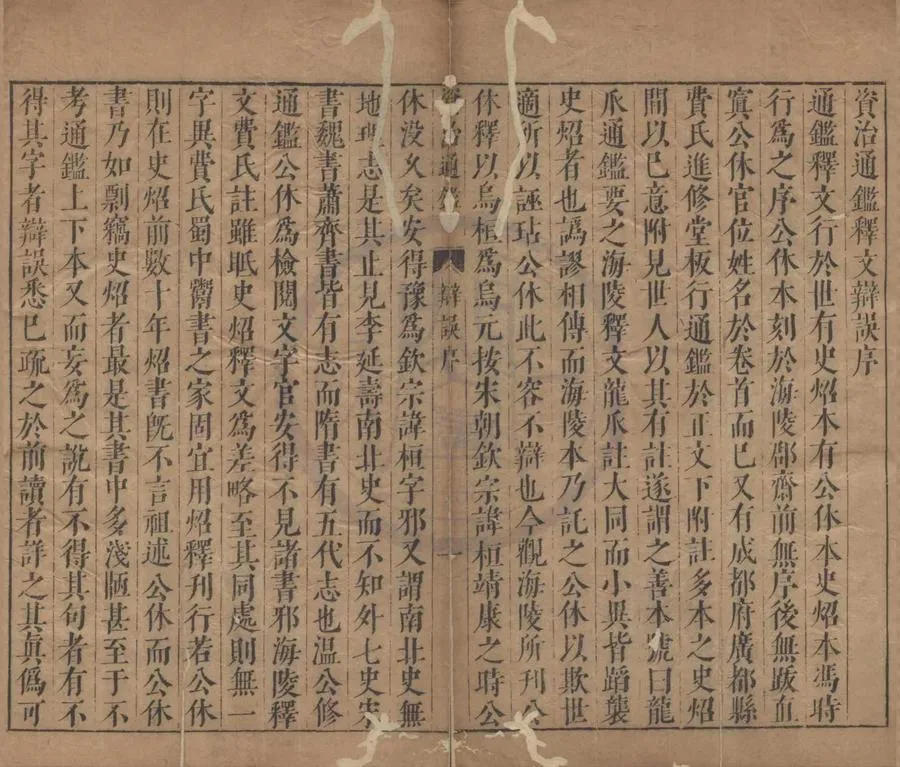 資治通鑑釋文辯誤序
通鑑釋文行於世有史炤本有公休本史炤本馮時
行爲之序公休本刻於海陵郡齋前無序後無跋直
寘公休官位姓名於卷首而巳又有成都府廣都縣
費氏進修堂板行通鑑於正文下附註多本之史炤
間以巳意附見世人以其有註遂謂之善本號曰龍
爪通鑑要之海陵釋文龍爪註大同而小異皆蹈襲
史炤者也譌謬相傳而海陵本乃託之公休以欺世
適所以誣玷公休此不容不辯也今觀海陵所刊公
休釋以烏桓爲烏元按宋朝欽宗諱桓靖康之時公
資治通鑑 辯誤序 一
休没久矣安得豫爲欽宗諱桓字邪又謂南北史無
地理志是其止見李延壽南北史而不知外七史宋
書魏書蕭齊書皆有志而隋書有五代志也温公修
通鑑公休爲檢閱文字官安得不見諸書邪海陵釋
文費氏註雖眂史炤釋文爲差略至其同處則無一
字異費氏蜀中鬻書之家固宜用炤釋刊行若公休
則在史炤前數十年炤書旣不言祖述公休而公休
書乃如剽竊史炤者最是其書中多淺陋甚至于不
考通鑑上下本文而妄爲之說有不得其句者有不
得其字者辯誤悉巳疏之於前讀者詳之其眞僞可